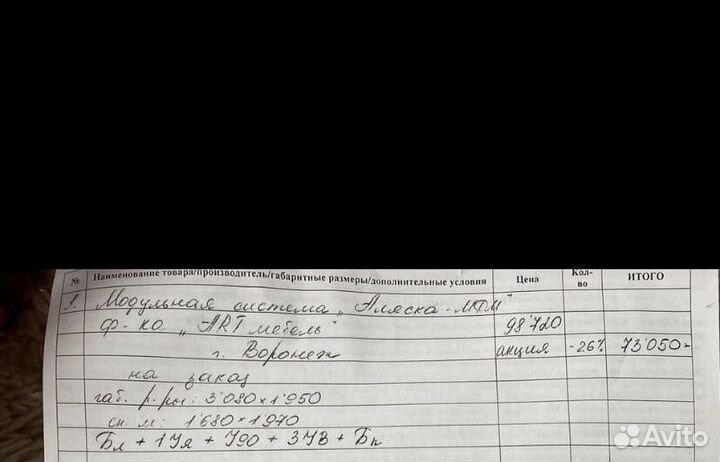 № Наименование товара/производитель/габаритные размеры/дополнительные условия Цена Кол-во ИТОГО
1. Модульная система „Аляска-МДМ"
ф-ка „ART мебель" 98'720
г. Воронеж акция -26% 73'050-
на заказ
габ. р.ры: 3'080 × 1'950
сп. м: 1'680 × 1'970
Бл + 1Уя + У90 + 3УВ + Бп
Avito